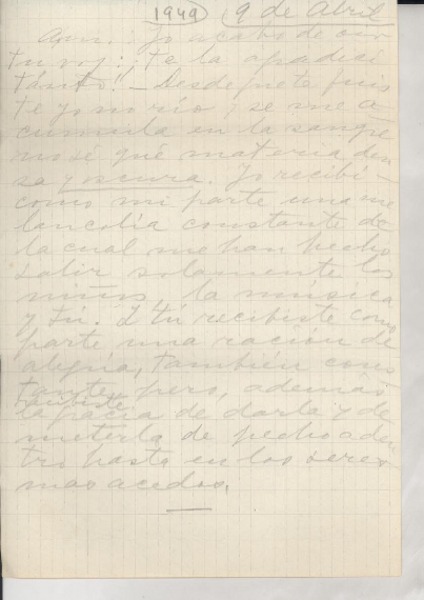 1949 9 de Abril
Yo acabo de oír
tu voz: ¡te la
tánto!! — Desde que te fuis
te yo no río y se me a
cumula en la sangre
no sé qué materia den
sa y oscura. Yo recibí
como mi parte una me
lancolía constante de
la cual me han hecho
salir solamente los
niños, la música
y tú. I tú recibiste como
parte una ración de
alegría, también cons
tante pero, además
recibiste
la gracia de darla y de
meterla de pecho aden
tro hasta en los seres
mas acedos.